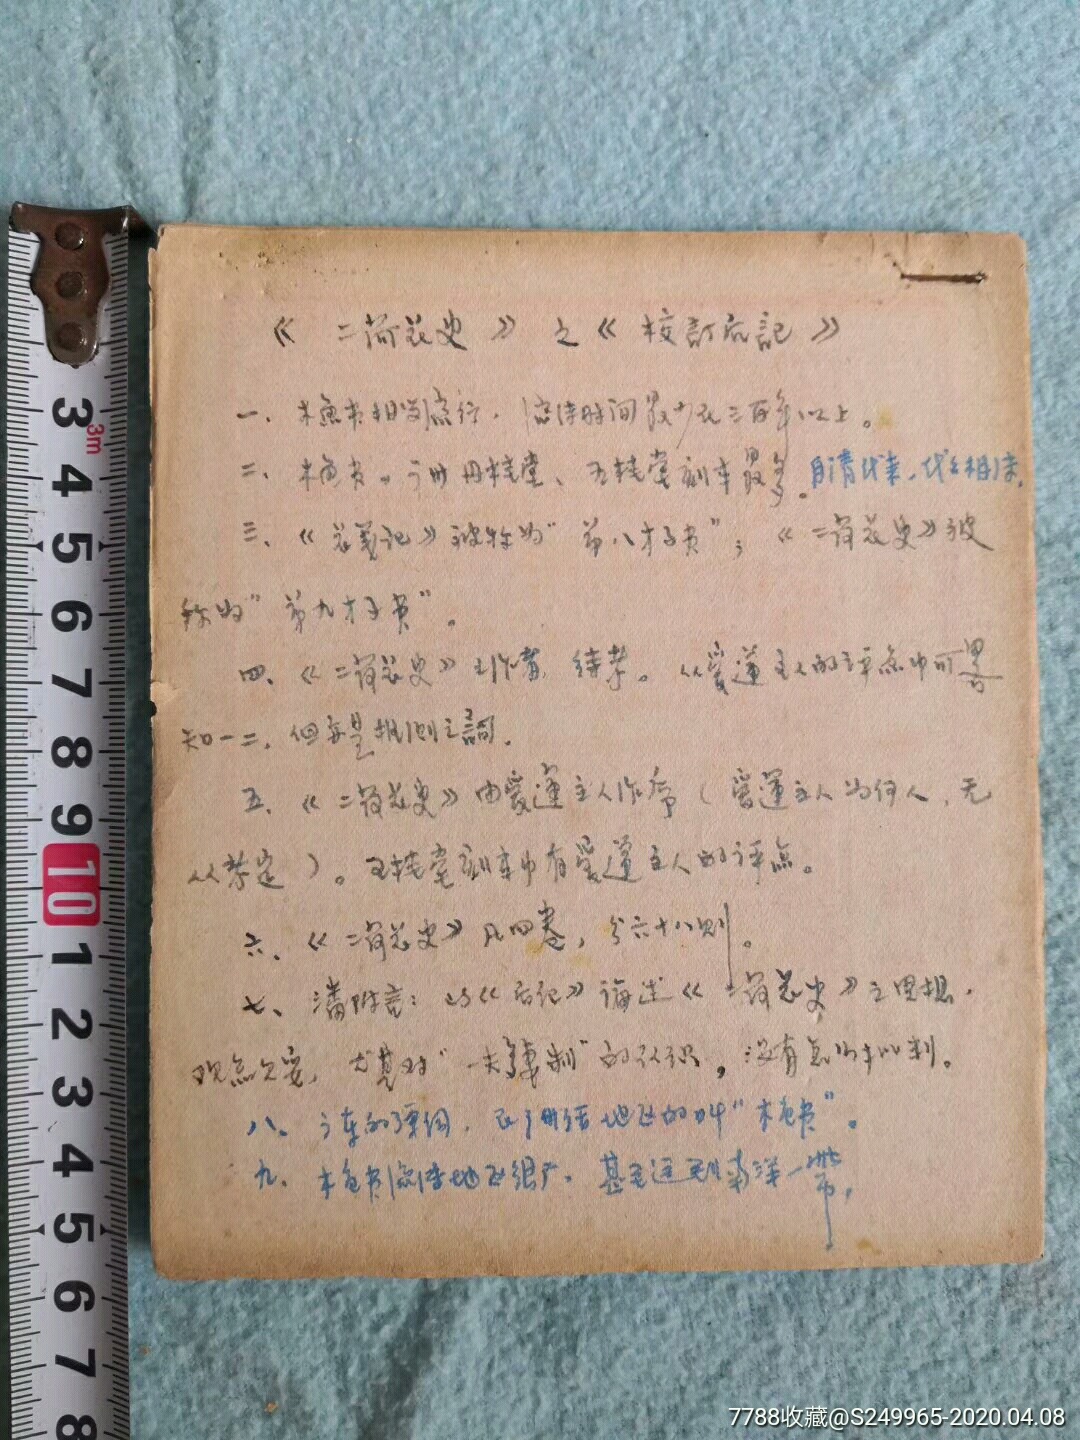 《二荷花史》之《校訂后記》
一、木魚书相当流行，流传时间最少在三百年以上。
二、木魚书，广州丹桂堂、五桂堂刻本最多。自清代来，代代相传。
三、《花笺记》被称为"第八才子书"；《二荷花史》被
称为"第九才子书"。
四、《二荷花史》之作者，待考。从爱莲主人的评点中可畧
知一二，但都是推测之詞。
五、《二荷花史》由爱蓮主人作序（爱蓮主人为何人，无
从考定）。五桂堂刻本中有爱蓮主人的评点。
六、《二荷花史》凡四卷，分六十八则。
七、潘附言：《后记》論述《二荷花史》之思想、
观点欠妥，尤其对"一夫多妻制"的认识，没有
八、广东的弹词，在广州话地区的叫"木魚书"。
九、木魚书流传地区很广，甚至远到南洋一带，
3m
3 4 5 6 7 8 9 10 1 2 3 4 5 6 7 8
7788收藏@S249965-2020.04.08